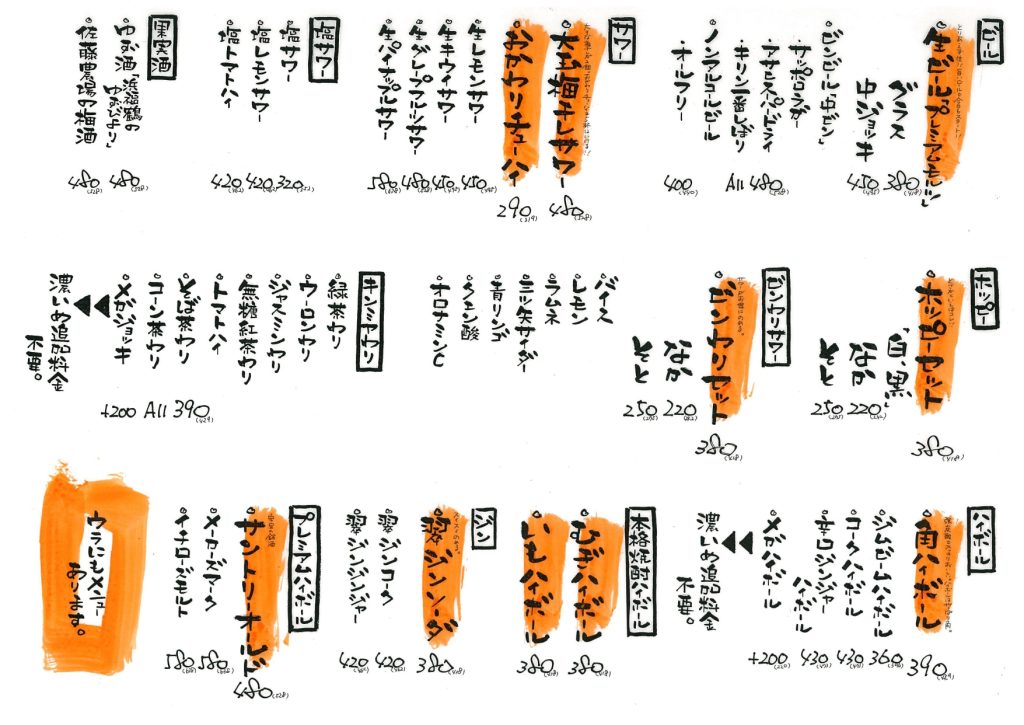 ビール
生ビール「プレミアムモルツ」
グラス 380(418)
中ジョッキ 450(495)
ビンビール・中ビン
・サッポロラガー
・アサヒスーパードライ
・キリン一番しぼり
All 480(528)
ノンアルコールビール
・オールフリー 400(440)
サワー
480(528)
おかわりチューハイ 290(319)
生レモンサワー 450(495)
生キウイサワー 450(495)
生グレープフルーツサワー 480(528)
生パイナップルサワー 580(638)
塩サワー
塩サワー 320(352)
塩レモンサワー 420(462)
塩トマトハイ 420(462)
果実酒
ゆず酒「浜福鶴の
ゆずびより」 480(528)
佐藤農場の梅酒 480(528)
ホッピー
ホッピーセット 380(418)
「白、黒」
なか 220(242)
そと 250(275)
ビンワリサワー
ビンワリセット 380(418)
なか 220(242)
そと 250(275)
バイス
レモン
ラムネ
三ツ矢サイダー
青リンゴ
クエン酸
オロナミンC
キンミヤワリ
緑茶ワリ
ウーロンワリ
ジャスミンワリ
無糖紅茶ワリ
トマトハイ
そば茶ワリ
コーン茶ワリ
All 390(429)
メガジョッキ +200
濃いめ追加料金
不要。
ハイボール
角ハイボール 390(429)
ジムビームハイボール 360(396)
コークハイボール 430(473)
辛口ジンジャー
ハイボール 430(473)
メガハイボール +200(220)
濃いめ追加料金
不要。
本格焼酎ハイボール
むぎハイボール 380(418)
いもハイボール 380(418)
ジン
翠ジンソーダ 380(418)
翠ジンコーク 420(462)
翠ジンジンジャー 420(462)
プレミアムハイボール
サントリーオールド 480(528)
メーカーズマーク 580(638)
イチローズモルト 580(638)
ウラにもメニュー
あります。